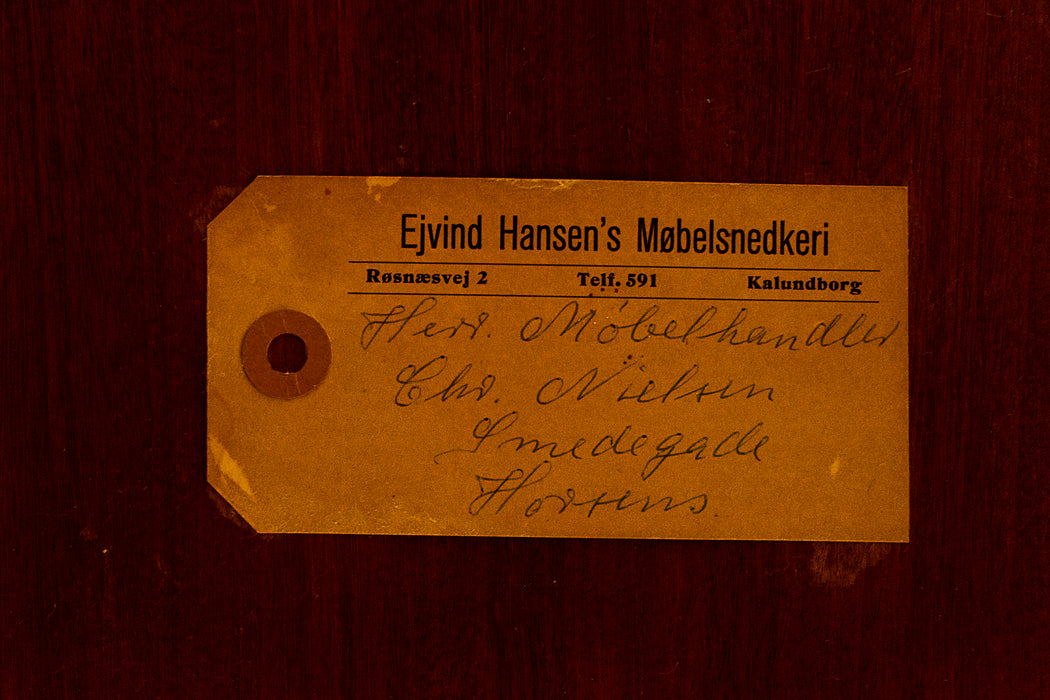 Ejvind Hansen's Møbelsnedkeri
Røsnæsvej 2 Telf. 591 Kalundborg
Herr. Møbelhandler
Chr. Nielsen
Smedegade
Horsens.